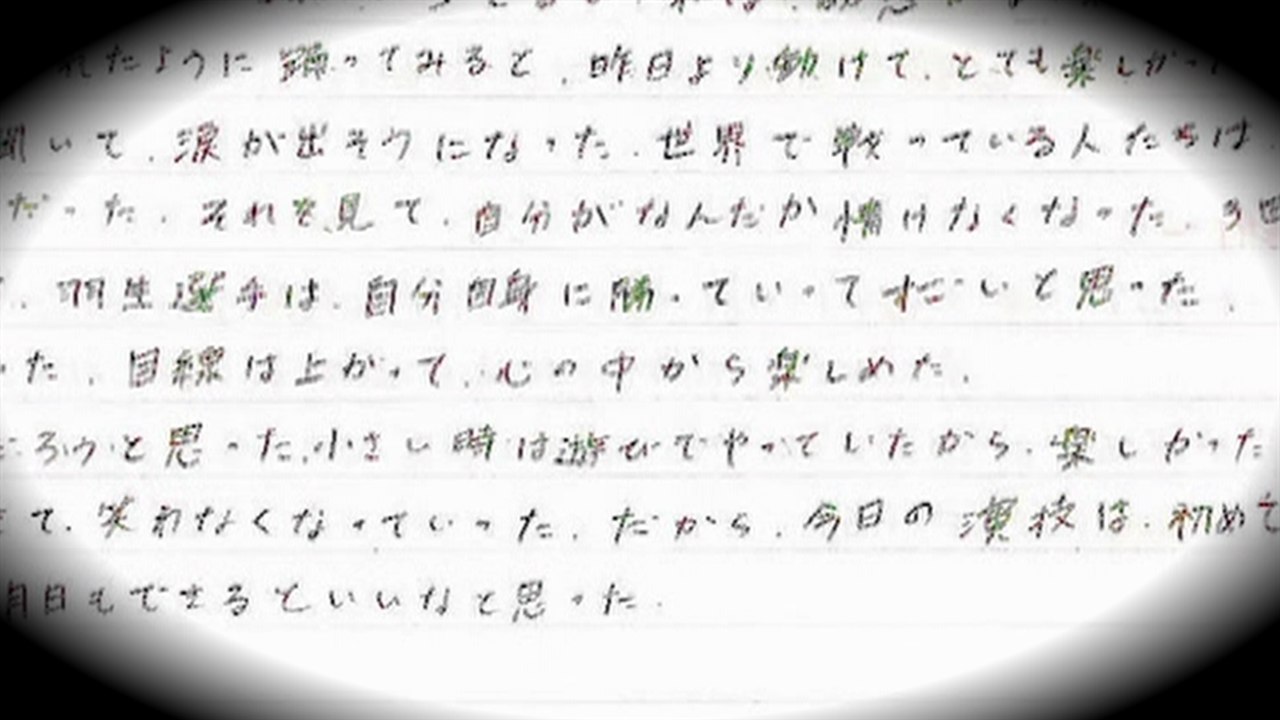 れたように踊ってみると、昨日より動けて、とても楽しかった
聞いて、涙が出そうになった。世界で戦っている人たちは、
だった。それを見て、自分がなんだか情けなくなった。3回
、羽生選手は、自分自身に勝っていってすごいと思った。
った。目線は上がって、心の中から楽しめた。
ろうと思った。小さい時は遊びでやっていたから、楽しかった
て、笑わなくなっていった。だから、今日の演技は、初めて
明日もできるといいなと思った。